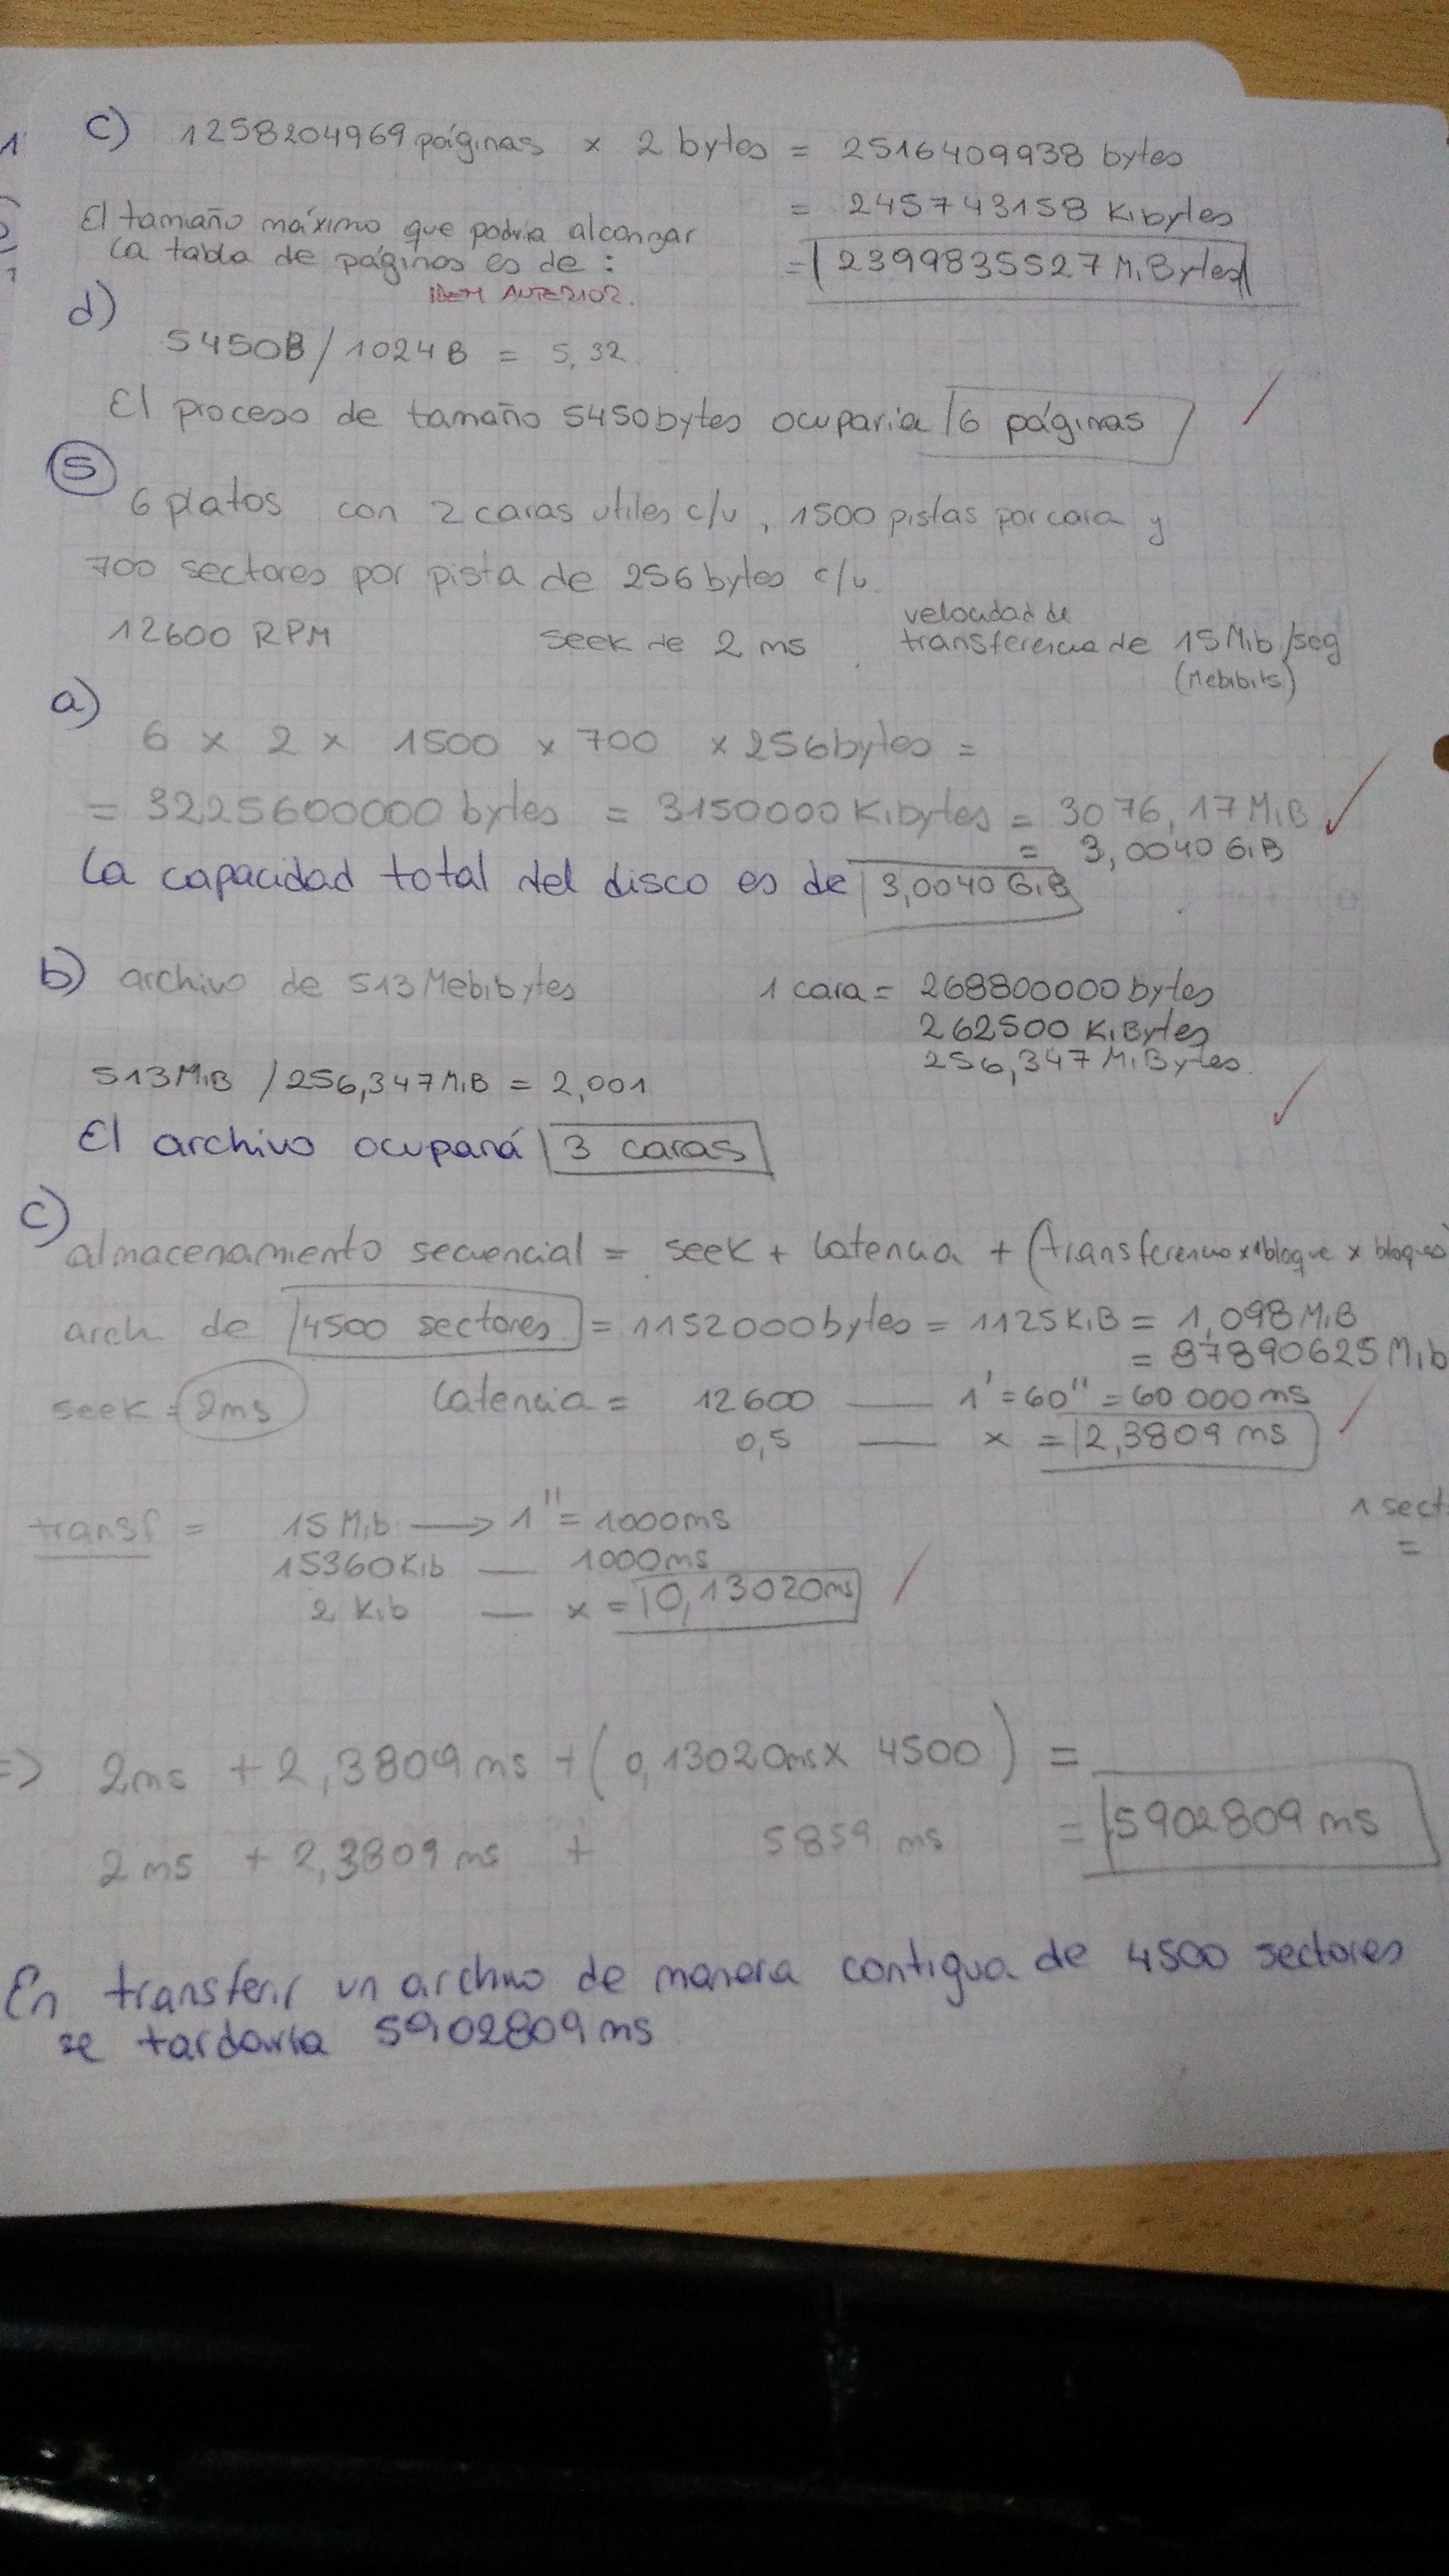 c) 1258204969 páginas x 2 bytes = 2516409938 bytes
= 245743158 Kibytes
El tamaño máximo que podria alcanzar
la tabla de páginas es de :
= 2399835527 MiBytes
IDEM ANTERIOR.
d)
5450B / 1024B = 5,32
El proceso de tamaño 5450bytes ocuparia 6 páginas
5
6 platos con 2 caras utiles c/u, 1500 pistas por cara y
700 sectores por pista de 256 bytes c/u.
12600 RPM seek de 2 ms. velocidad de
transferencia de 15 Mib/seg
(Mebibits)
a)
6 x 2 x 1500 x 700 x 256 bytes =
= 3225600000 bytes = 3150000 Kibytes = 3076,17 MiB
= 3,0040 GiB
La capacidad total del disco es de 3,0040 GiB
b) archivo de 513 Mebibytes 1 cara = 268800000 bytes
262500 KiBytes
256,347 MiBytes.
513 MiB / 256,347 MiB = 2,001
El archivo ocupará 3 caras
c)
almacenamiento secuencial = seek + latencia + (transferencia x 1 bloque x bloques
arch de 4500 sectores = 1152000 bytes = 1125 KiB = 1,098 MiB
= 87890625 Mib
seek = 2ms latencia = 12600 — 1' = 60'' = 60 000 ms
0,5 — x = 2,3809 ms
transf = 15 Mib → 1'' = 1000ms
1 sect.
=
15360 Kib — 1000ms
2 Kib — x = 0,13020ms
=> 2ms + 2,3809 ms + (0,13020ms x 4500) =
2 ms + 2,3809 ms + 5859 ms = 5902809 ms
En transferir un archivo de manera contigua de 4500 sectores
se tardaria 5902809 ms